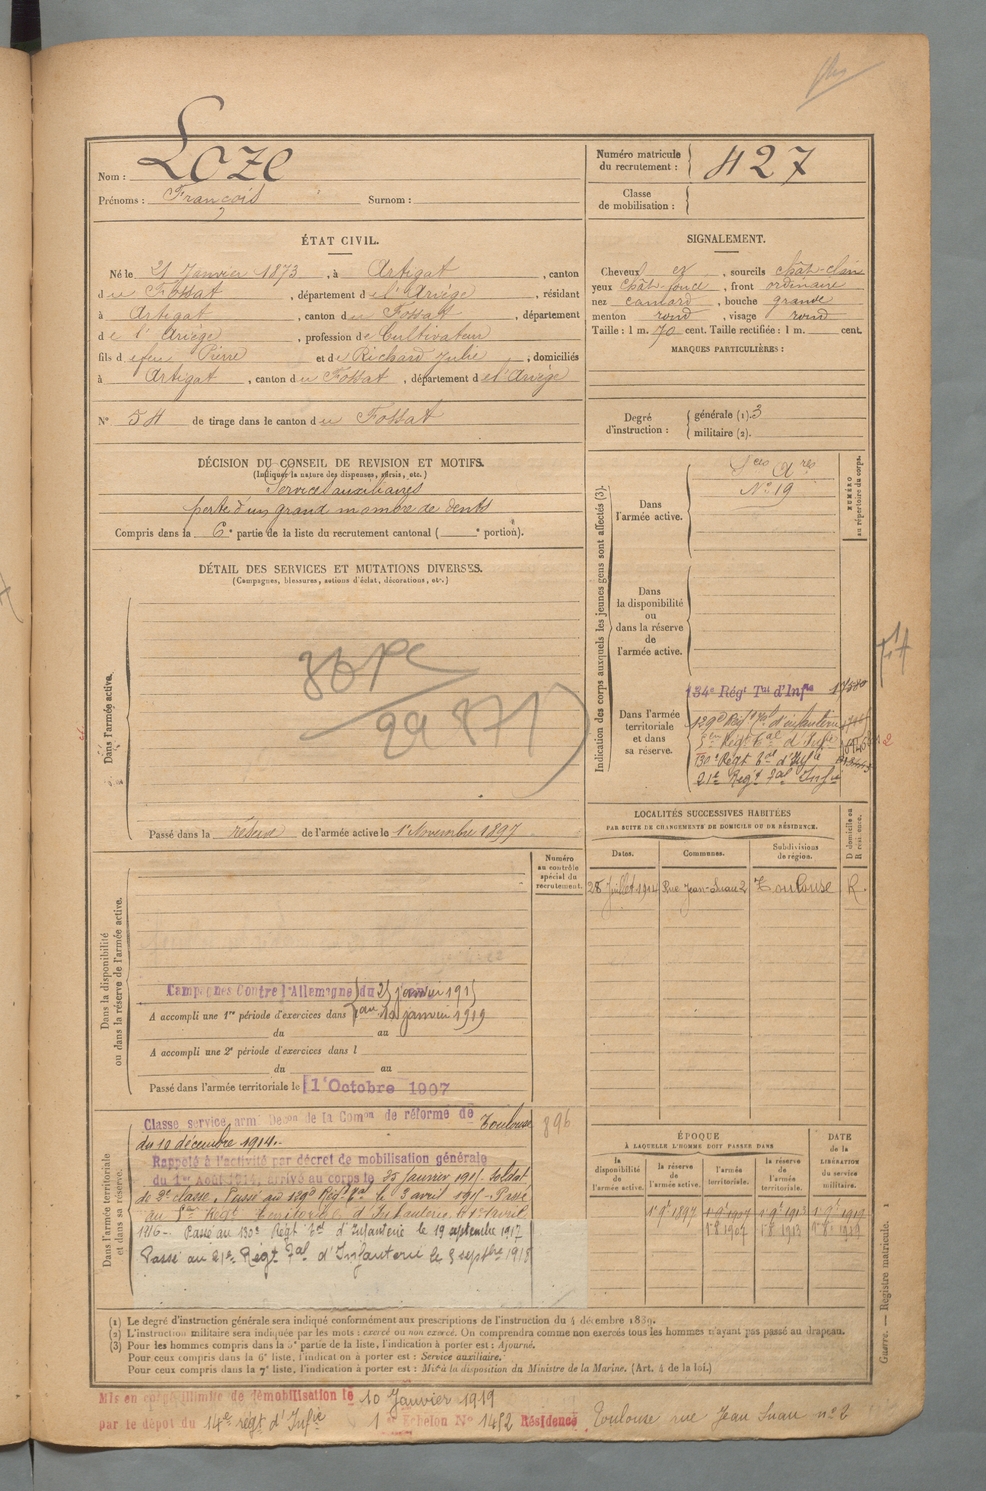 Nom : Loze
Prénoms : François Surnom :
Numéro matricule du recrutement : 427
Classe de mobilisation :
ÉTAT CIVIL.
Né le 21 Janvier 1873, à Artigat, canton
du Fossat, département de l'Ariège, résidant
à Artigat, canton du Fossat, département
de l'Ariège, profession de Cultivateur
fils de feu Pierre et de Richard Julie, domiciliés
à Artigat, canton du Fossat, département de l'Ariège
N° 54 de tirage dans le canton du Fossat
SIGNALEMENT.
Cheveux et, sourcils chât-clair
yeux chât-foncé, front ordinaire
nez camard, bouche grande
menton rond, visage rond
Taille : 1 m. 70 cent. Taille rectifiée : 1 m. cent.
MARQUES PARTICULIÈRES :
Degré d'instruction : générale (1). 3
militaire (2).
DÉCISION DU CONSEIL DE REVISION ET MOTIFS.
(Indiquer la nature des dispenses, sursis, etc.)
Services auxiliaires
perte d'un grand nombre de dents
Compris dans la 6e partie de la liste du recrutement cantonal ( e portion).
DÉTAIL DES SERVICES ET MUTATIONS DIVERSES.
(Campagnes, blessures, actions d'éclat, décorations, etc.)
Dans l'armée active.
Passé dans la réserve de l'armée active le 1er Novembre 1897
Indication des corps auxquels les jeunes gens sont affectés (3).
NUMÉRO au répertoire du corps.
Dans l'armée active.
Sces Ares
N° 19
Dans la disponibilité ou dans la réserve de l'armée active.
Dans l'armée territoriale et dans sa réserve.
134e Régt Tal d'Infie
129e Régt Tal d'infanterie
5me Régt Tal d'Infie
130e Régt Tal d'Infie
21e Régt Tal Infie
LOCALITÉS SUCCESSIVES HABITÉES
PAR SUITE DE CHANGEMENTS DE DOMICILE OU DE RÉSIDENCE.
Dates. Communes. Subdivisions de région. D domicile ou R résidence.
28 Juillet 1914 Rue Jean-Suau 2 Toulouse R.
Dans la disponibilité ou dans la réserve de l'armée active.
Numéro au contrôle spécial du recrutement.
Campagnes Contre l'Allemagne du 25 janvier 1915
au 10 janvier 1919
A accompli une 1re période d'exercices dans
du au
A accompli une 2e période d'exercices dans l
du au
Passé dans l'armée territoriale le 1er Octobre 1907
Dans l'armée territoriale et dans sa réserve.
896
Classé service armé Décon de la Comon de réforme de Toulouse
du 10 décembre 1914.
Rappelé à l'activité par décret de mobilisation générale
du 1er Août 1914, arrivé au corps le 25 Janvier 1915. Soldat
de 2e classe. Passé au 129e Régt Tal le 3 avril 1915. Passé
au 5me Régt Territorial d'Infanterie le 1er avril
1916. Passé au 130e Régt Tal d'Infanterie le 19 septembre 1917
Passé au 21e Régt Tal d'Infanterie le 8 septbre 1918
ÉPOQUE
À LAQUELLE L'HOMME DOIT PASSER DANS
la disponibilité de l'armée active. la réserve de l'armée active. l'armée territoriale. la réserve de l'armée territoriale.
DATE de la LIBÉRATION du service militaire.
1er 9bre 1897 1er 9bre 1907 1er 9bre 1913 1er 9bre 1919
(1) Le degré d'instruction générale sera indiqué conformément aux prescriptions de l'instruction du 4 décembre 1889.
(2) L'instruction militaire sera indiquée par les mots : exercé ou non exercé. On comprendra comme non exercés tous les hommes n'ayant pas passé au drapeau.
(3) Pour les hommes compris dans la 5e partie de la liste, l'indication à porter est : Ajourné.
Pour ceux compris dans la 6e liste, l'indication à porter est : Service auxiliaire.
Pour ceux compris dans la 7e liste, l'indication à porter est : Mis à la disposition du Ministre de la Marine. (Art. 4 de la loi.)
Guerre. — Registre matricule. 1
Mis en congé illimité de démobilisation le 10 Janvier 1919
par le dépôt du 14e régt d'Infie 1er Echelon N° 1452 Résidence Toulouse rue Jean Suau n° 2